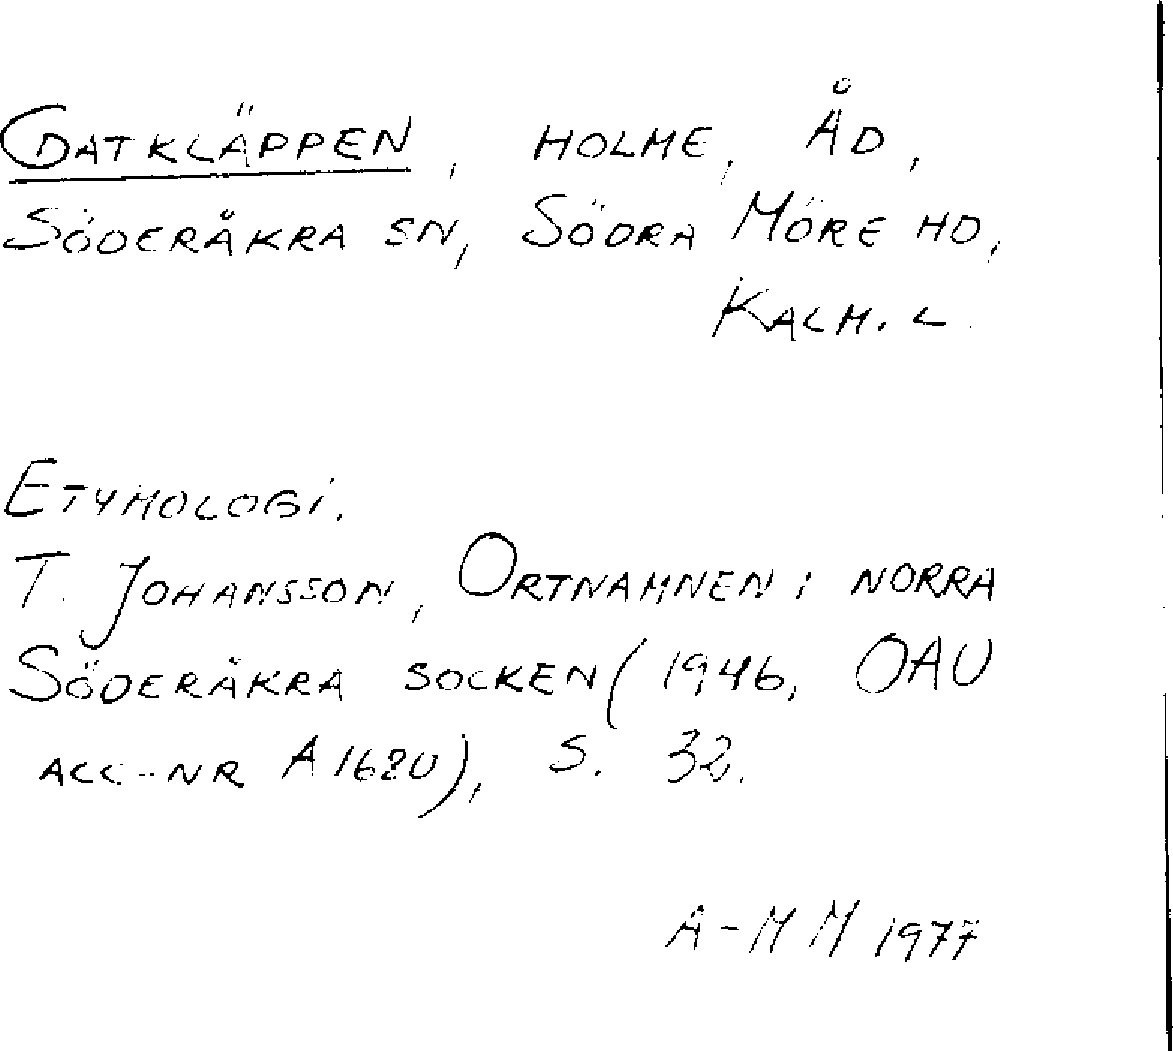 GATKLÄPPEN, HOLME, ÅD,
SÖDERÅKRA SN, SÖDRA MÖRE HD,
KALM. L.
ETYMOLOGI.
T. JOHANSSON, ORTNAMNEN I NORRA
SÖDERÅKRA SOCKEN (1946, OAU
ACC-NR), S. 32.
A-M M 1977